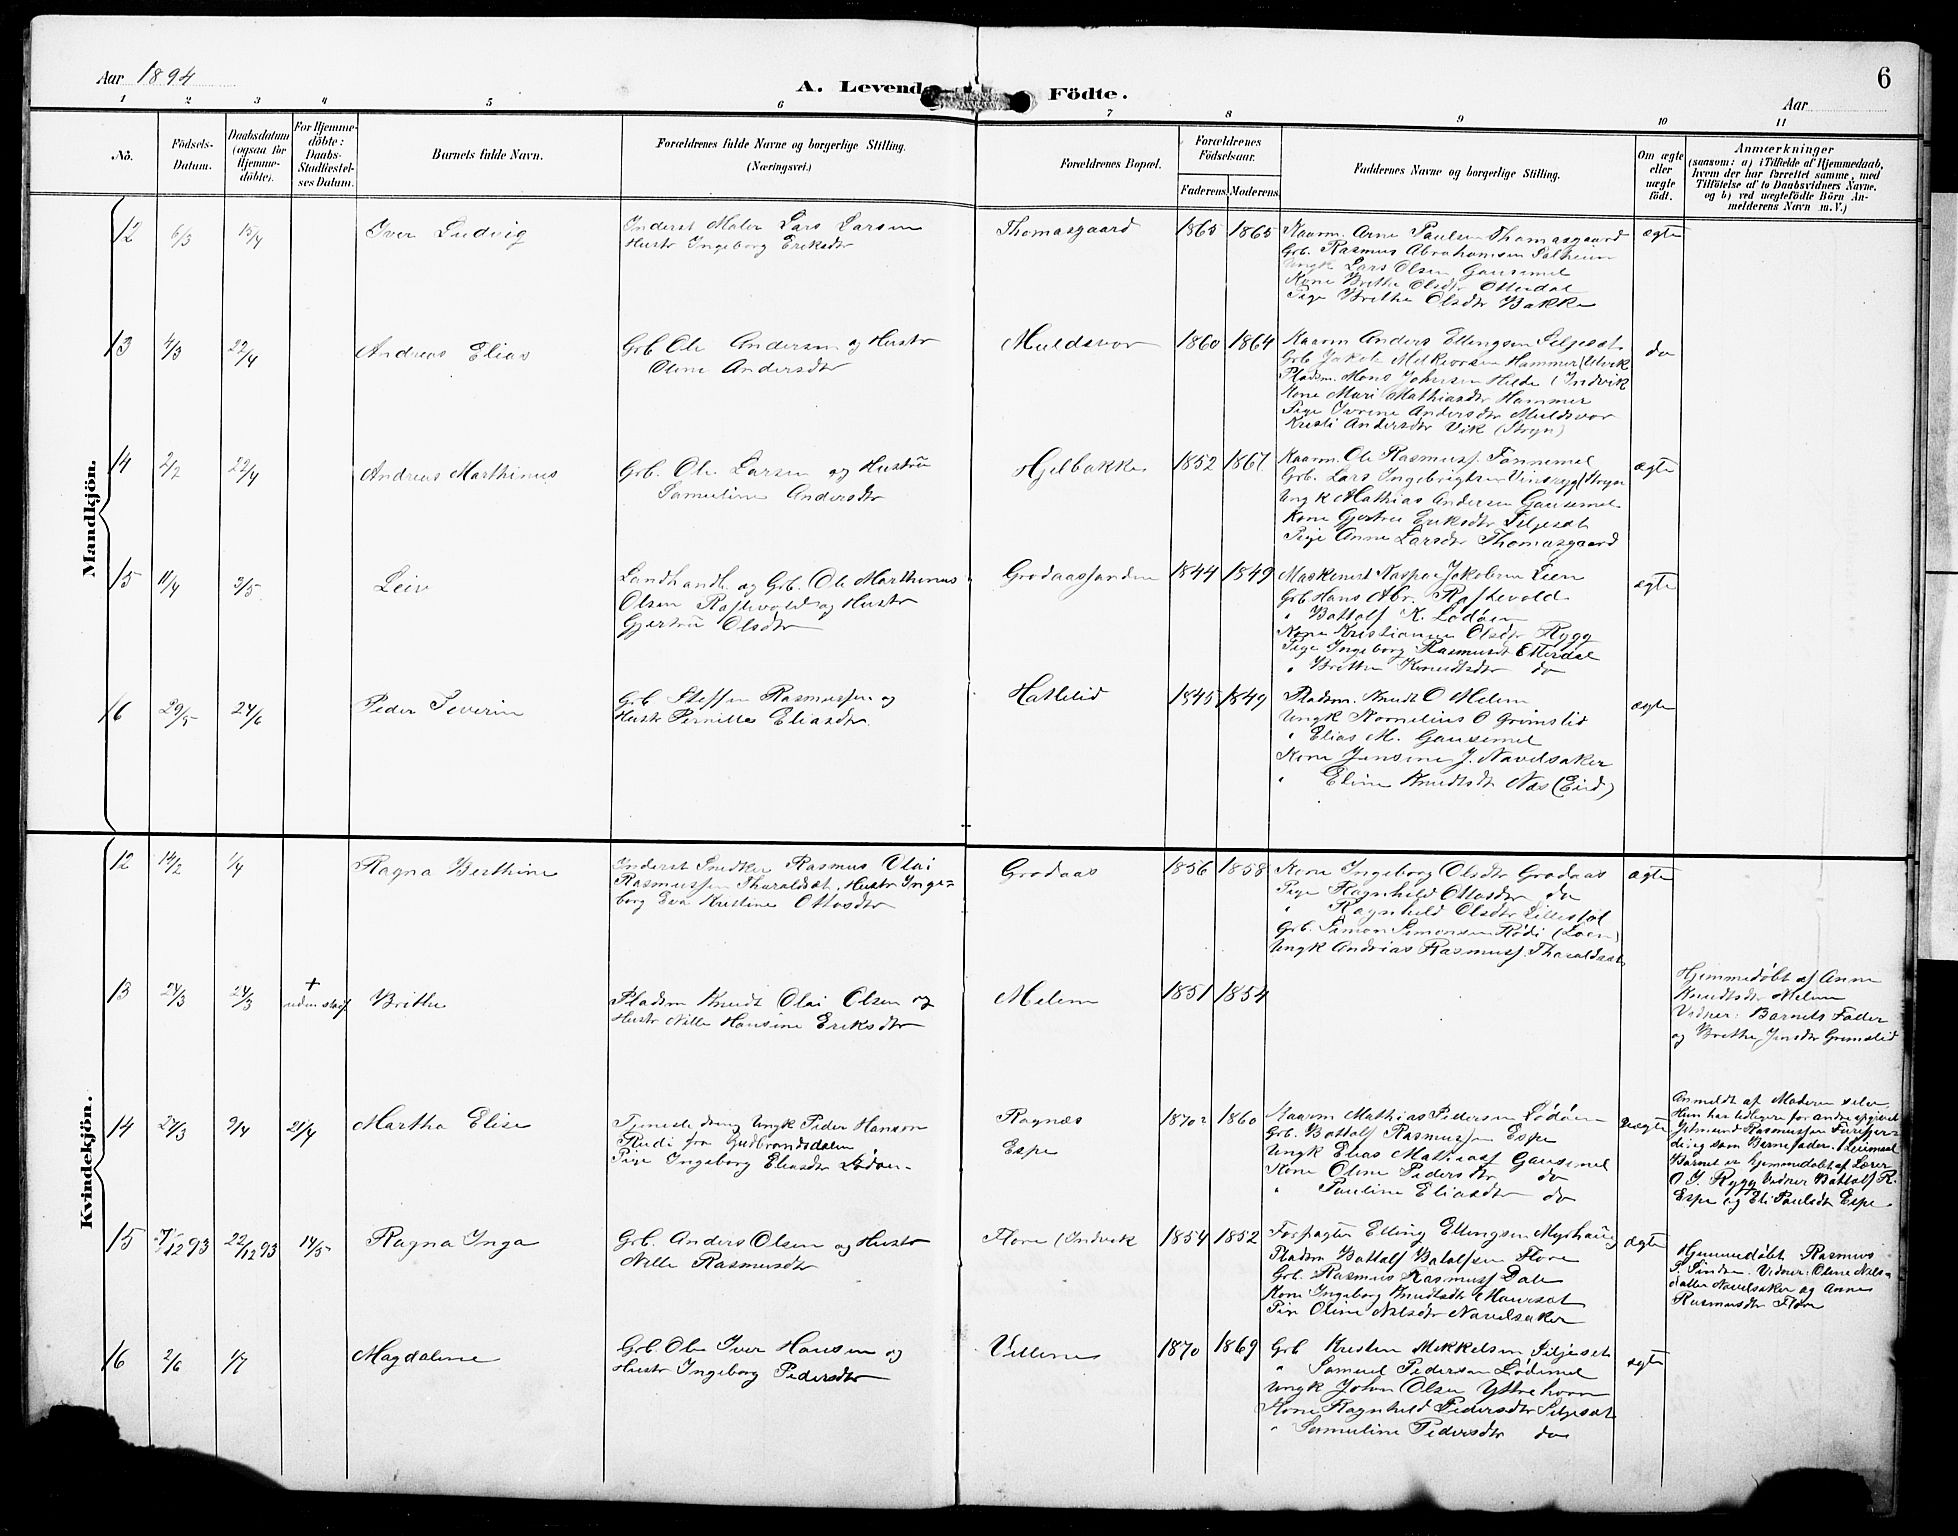 Aar 1894
A. Levende Födte.
6
Aar
1 2 3 4 5 6 7 8 9 10 11
Nö.
Födsels-Datum.
Daabsdatum (ogsaa for Hjemmedöbte).
For Hjemmedöbte: Daabs-Stadfæstelses Datum.
Barnets fulde Navn.
Forældrenes fulde Navne og borgerlige Stilling. (Næringsvei.)
Forældrenes Bopæl.
Forældrenes Födselsaar.
Faderens. Moderens.
Faddernes Navne og borgerlige Stilling.
Om ægte eller uægte födt.
Anmærkninger
(saasom: a) i Tilfælde af Hjemmedaab,
hvem der har forrettet samme, med
Tilföielse af to Daabsvidners Navne,
og b) ved uægtefödte Börn An-
melderens Navn m. V.)
Mandkjön.
12 6/3 15/4 Iver Ludvig
Inderst Maler Lars Larsen
Hustr Ingeborg Eriksdtr
Thomasgaard 1865 1865
Kaarm. Arne Paulsen Thomasgaard
Grb. Rasmus Abrahamsen Solheim
Ungk Lars Olsen Gausemel
Kone Brithe Olsdtr Otterdal
Pige Brithe Olsdtr Bakke
ægte
13 4/3 22/4 Andreas Elias
Grb Ole Andersen og Hustr
Oline Andersdtr
Muldsvor 1860 1864
Kaarm Anders Ellingsen Siljeset
Grb Jakob Melkiorsen Hammer (Utvik
Pladsm. Mons Johnsen Hilde (Indvik
Kone Mari Mathiasdtr Hammer
Pige Iverine Andersdtr Muldsvor
Kristi Andersdtr Vik (Stryn)
do
14 2/2 22/4 Andreas Marthinus
Grb. Ole Larsen og Hustru
Samueline Andersdtr
Hjelbakke 1852 1867
Kaarm. Ole Rasmuss. Tonnemel
Grb. Lars Ingebrigtsen Vinsryg (Stryn
Ungk Mathias Andersen Gausemel
Kone Gjertru Eriksdtr Siljeset
Pige Anne Larsdtr Thomasgaard
ægte
15 11/4 3/5 Leiv
Landhandl. og Grb. Ole Marthinus
Olsen Raftevold og Hustr
Gjertru Olsdtr
Grodaassanden 1844 1849
Maskinist Kaspar Jakobsen Leen
Grb Hans Abr. Raftevold
" Battolf K. Lødøen
Kone Kristianne Olsdtr Rygg
Pige Ingeborg Rasmusdt Otterdal
" Brithe Knudtsdtr do
ægte
16 29/5 24/6 Peder Severin
Grb Steffen Rasmussen og
Hustr Pernille Eliasdtr.
Hatlelid 1845 1849
Pladsm. Knudt O Melem
Ungk Kornelius O Grimslid
" Elias M. Gausemel
Kone Jensine J. Navelsaker
" Eline Knudtsdtr Nos (Eid)
ægte
Kvindekjön.
12 14/2 1/4 Ragna Berthine
Inderst Snedker Rasmus Olai
Rasmussen Tharaldset. Hustr Inge=
borg Eva Kristine Ottosdtr
Grodaas 1856 1858
Kone Ingeborg Olsdtr Grodaas
Pige Ragnhild Ottosdtr do
" Ragnhild Olsdtr Lillestøl
Grb. Simon Simonsen Rødi (Loen)
Ungk Andrias Rasmuss. Tharaldset
ægte
13 24/3 24/3 + uden stadf. Brithe
Pladsm Knudt Olai Olsen og
Hustr Nille Hansine Eriksdtr
Melem 1851 1854
Hjemmedøbt af Anne
Knudtsdtr Melem
Vidner: Barnets Fader
og Brithe Jensdtr Grimslid
14 24/3 9/4 21/4 Martha Elise
Tjenestedreng Ungk Peder Hanson
Rudi fra Gudbrandsdalen
Pige Ingeborg Eliasdtr Lødøen
Ragnæs
Espe
1870? 1860
Kaarm Mathias Pedersen Lødøen
Grb. Battolf Rasmussen Espe
Ungk Elias Mathiass Gausemel
Kone Oline Pedersdtr do
" Pauline Eliasdtr do
Uægte
Anmeldt af Moderen selv.
Hun har tidligere for andre opgivet
Barnet er hjemmedøbt af Lærer
O J. Rygg Vidner Battolf R.
Espe og Eli Paulsdtr Espe
15 7/12 93 22/12 93 14/5 Ragna Inga
Grb. Anders Olsen og Hustr
Nille Rasmusdtr
Flore (Indvik 1854 1852
Forpagter Elling Ellingsen Myrhaug
Pladsm Battolf Batolfsen Flore
Grb. Rasmus Rasmuss Dale
Kone Ingeborg Knudtsdtr Maurset
Pige Oline Nilsdtr Navelsaker
ægte
Hjemmedøbt Rasmus
S. Sindre. Vidner: Oline Nils-
datter Navelsaker og Anne
Rasmusdtr Flore
16 2/6 1/7 Magdaline
Grb Ole Iver Hansen og
Hustr Ingeborg Pedersdtr
Villene 1870 1869
Grb Kresten Mikkelsen Siljeset
" Samuel Pedersen Lødemel
Ungk John Olsen Yttrehorn
Kone Ragnhild Pedersdtr Siljeset
" Samueline Pedersdtr do
ægte